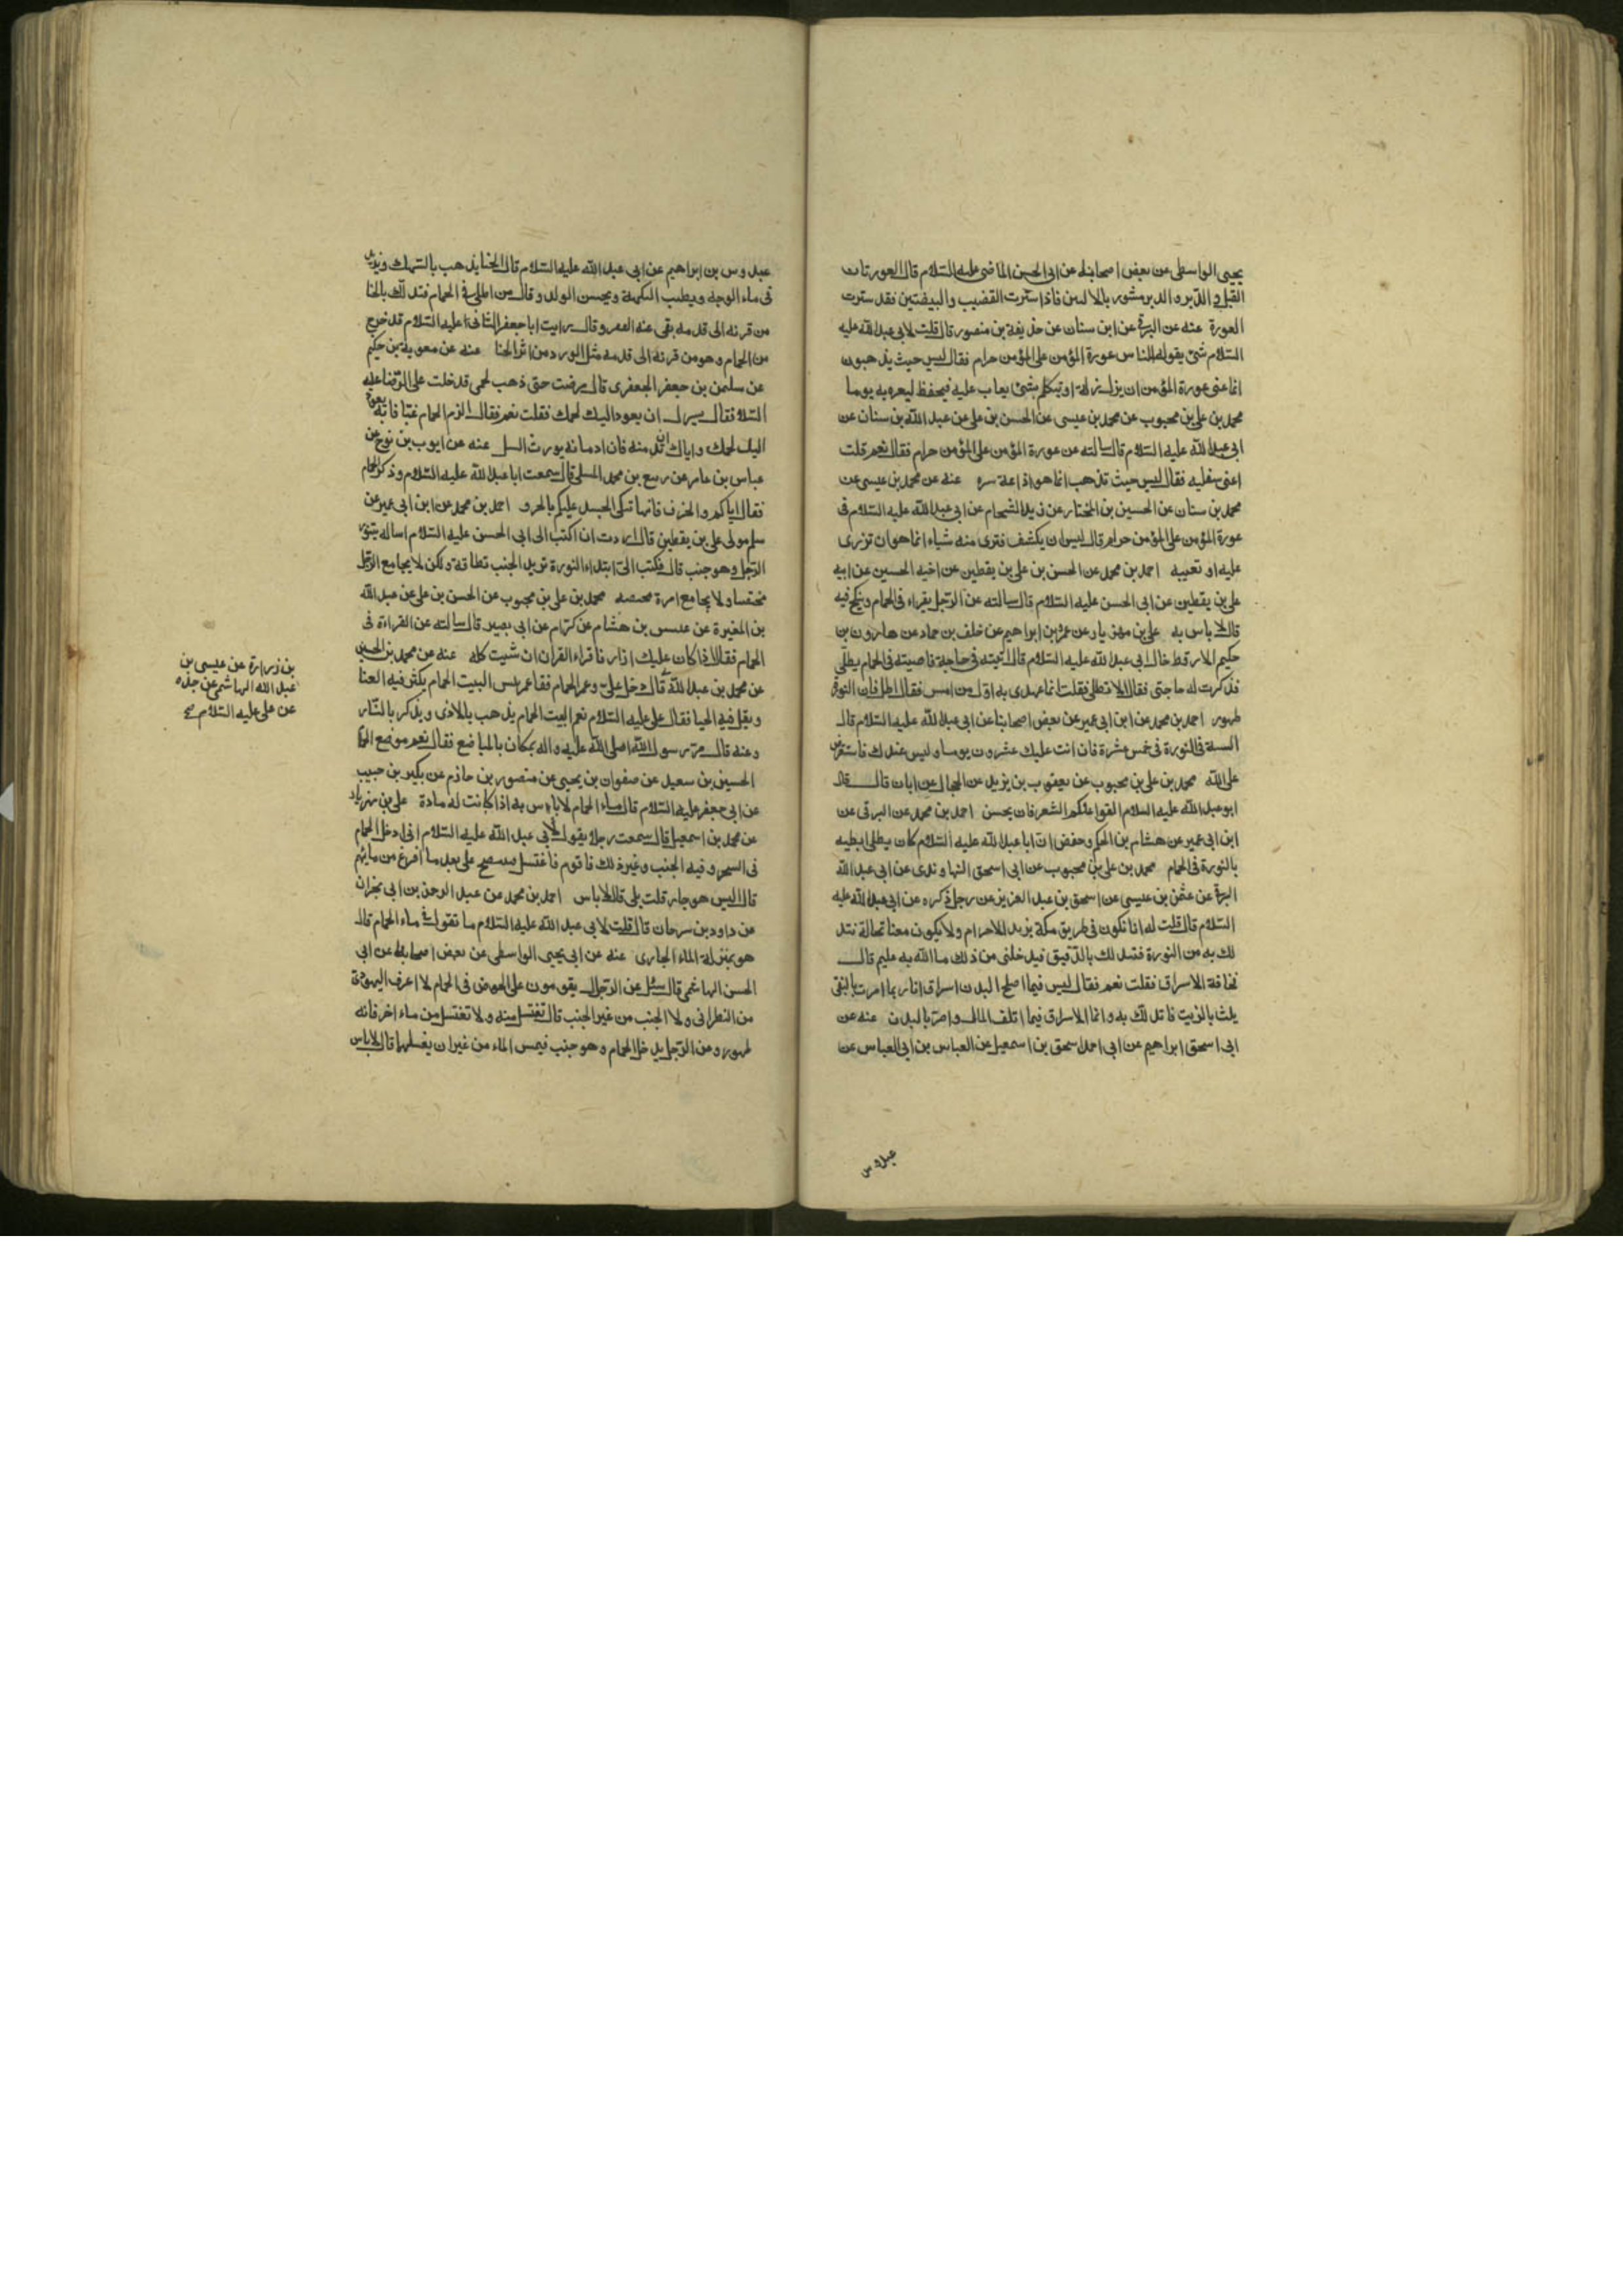 يحيى الواسطى عن بعض اصحابنا عن ابى الحسن الماضى عليه السلام قال العورتان
القبل و الدبر و الدبر مستور بالاليين فاذا سترت القضيب والبيضتين فقد سترت
العورة عنه عن البرقى عن ابن سنان عن حذيفة بن منصور قال قلت لابى عبد الله عليه
السلام شئ يقوله الناس عورة المؤمن على المؤمن حرام فقال ليس حيث يذهبون
انما عنى عورة المؤمن ان يزل زلة او يتكلم بشئ يعاب عليه فيحفظ ليعره به يوما
محمد بن على بن محبوب عن محمد بن عيسى عن الحسن بن على عن عبد الله بن سنان عن
ابى عبد الله عليه السلام قال سالته عن عورة المؤمن على المؤمن حرام فقال نعم قلت
اعنى سفليه فقال ليس حيث تذهب انما هو اذاعة سره عنه عن محمد بن عيسى عن
محمد بن سنان عن الحسين بن المختار عن زيد الشحام عن ابى عبد الله عليه السلام فى
عورة المؤمن على المؤمن حرام قال ليس ان يكشف فترى منه شياء انما هو ان تزرى
عليه او تعيبه احمد بن محمد عن الحسن بن على بن يقطين عن اخيه الحسين عن ابيه
على بن يقطين عن ابى الحسن عليه السلام قال سالته عن الرجل يقراء فى الحمام وينكح فيه
قال لا باس به على بن مهزيار عن عمرو بن ابراهيم عن خلف بن حماد عن هارون بن
حكيم الارقط خال ابى عبد الله عليه السلام قال اتيته فى حاجة فاصبته فى الحمام يطلى
فذكرت له حاجتى فقال الا تطلى فقلت انما عهدى به اول من امس فقال اطل فان النورة
طهور احمد بن محمد عن ابن ابى عمير عن بعض اصحابنا عن ابى عبد الله عليه السلام قال
السنة فى النورة فى خمس عشرة فان اتت عليك عشرون يوما وليس عندك فاستقرض
على الله محمد بن على بن محبوب عن يعقوب بن يزيد عن ابان قال قال
ابو عبد الله عليه السلام القوا عنكم الشعر فان يحسن احمد بن محمد عن البرقى عن
ابن ابى عمير عن هشام بن الحكم وحفص ان ابا عبد الله عليه السلام كان يطلى ابطيه
بالنورة فى الحمام محمد بن على بن محبوب عن ابى اسحق النهاوندى عن ابى عبد الله
البرقى عن عثمن بن عيسى عن اسحق بن عبد العزيز عن رجل ذكره عن ابى عبد الله عليه
السلام قال قلت له انا نكون فى طريق مكة نريد الاحرام ولا يكون معنا نخالة نتد
لك به من النورة فتدلك بالدقيق فيدخلنى من ذلك ما الله به عليم قال
مخافة الاسراف فقلت نعم فقال ليس فيما اصلح البدن اسراف انا ربما امرت بالنقى
يلث بالزيت فاتدلك به وانما الاسراف فيما اتلف المال واضر بالبدن عنه عن
ابى اسحق ابراهيم عن ابى احمد اسحق بن اسمعيل عن العباس بن ابى العباس عن
عبدوس
عبدوس بن ابراهيم عن ابى عبد الله عليه السلام قال الحنا يذهب بالسهك ويزيد
فى ماء الوجه ويطيب النكهة ويحسن الولد وقال من اطلى فى الحمام فتدلك بالحنا
من قرنه الى قدمه نفى عنه الفقر وقال رايت ابا جعفر الثانى عليه السلام قد خرج
من الحمام وهو من قرنه الى قدمه مثل الورد من اثر الحنا عنه عن معوية بن حكيم
عن سليمن بن جعفر الجعفرى قال مرضت حتى ذهب لحمى فدخلت على الرضا عليه
السلام فقال يسرك ان يعود اليك لحمك فقلت نعم فقال الزم الحمام غبا فانه يعود
اليك لحمك واياك ان تدمنه فان ادمانه يورث السل عنه عن ايوب بن نوح عن
عباس بن عامر عن ربيع بن محمد المسلى قال سمعت ابا عبد الله عليه السلام وذكر الحمام
فقال اياكم والخزف فانها تنكى الجسد عليكم بالخرق احمد بن محمد عن ابن ابى عمير عن
سلم مولى على بن يقطين قال اردت ان اكتب الى ابى الحسن عليه السلام اساله يتنور
الرجل وهو جنب قال فكتب الى ابتداء النورة تزيد الجنب نظافة ولكن لا يجامع الرجل
مختضبا ولا يجامع امرة مختضبة محمد بن على بن محبوب عن الحسن بن على عن عبد الله
بن المغيرة عن عبيس بن هشام عن كرام عن ابى بصير قال سالته عن القراءة فى
الحمام فقال اذا كان عليك ازار فاقراء القران ان شيت كله عنه عن محمد بن الحسين
عن محمد بن عبد الله قال دخل على وعمر الحمام فقا عمر بئس البيت الحمام يكثر فيه العنا
ويقل فيه الحيا فقال على عليه السلام نعم البيت الحمام يذهب بالاذى ويذكر بالنار
وعنه قال مر رسول الله صلى الله عليه واله بمكان بالمباضع فقال نعم موضع الحمام
الحسين بن سعيد عن صفوان بن يحيى عن منصور بن حازم عن بكير بن حبيب
عن ابى جعفر عليه السلام قال ماء الحمام لا باس به اذا كانت له مادة على بن مهزيار
عن محمد بن اسمعيل قال سمعت رجلا يقول لابى عبد الله عليه السلام انى ادخل الحمام
فى السحر وفيه الجنب وغير ذلك فاقوم فاغتسل فينتضح على بعد ما افرغ من مائهم
قال اليس هو جار قلت بلى قال لا باس احمد بن محمد عن عبد الرحمن بن ابى نجران
عن داود بن سرحان قال قلت لابى عبد الله عليه السلام ما تقول فى ماء الحمام قال
هو بمنزلة الماء الجارى عنه عن ابى يحيى الواسطى عن بعض اصحابنا عن ابى
الحسن الهاشمى قال سئل عن الرجال يقومون على الحوض فى الحمام لا اعرف اليهودى
من النصرانى ولا الجنب من غير الجنب قال تغتسل منه ولا تغتسل من ماء اخر فانه
طهور وعن الرجل يدخل الحمام وهو جنب فيمس الماء من غير ان يغسلها قال لا باس
بن زرارة عن عيسى بن
عبد الله الهاشمى عن جده
عن على عليه السلام صح